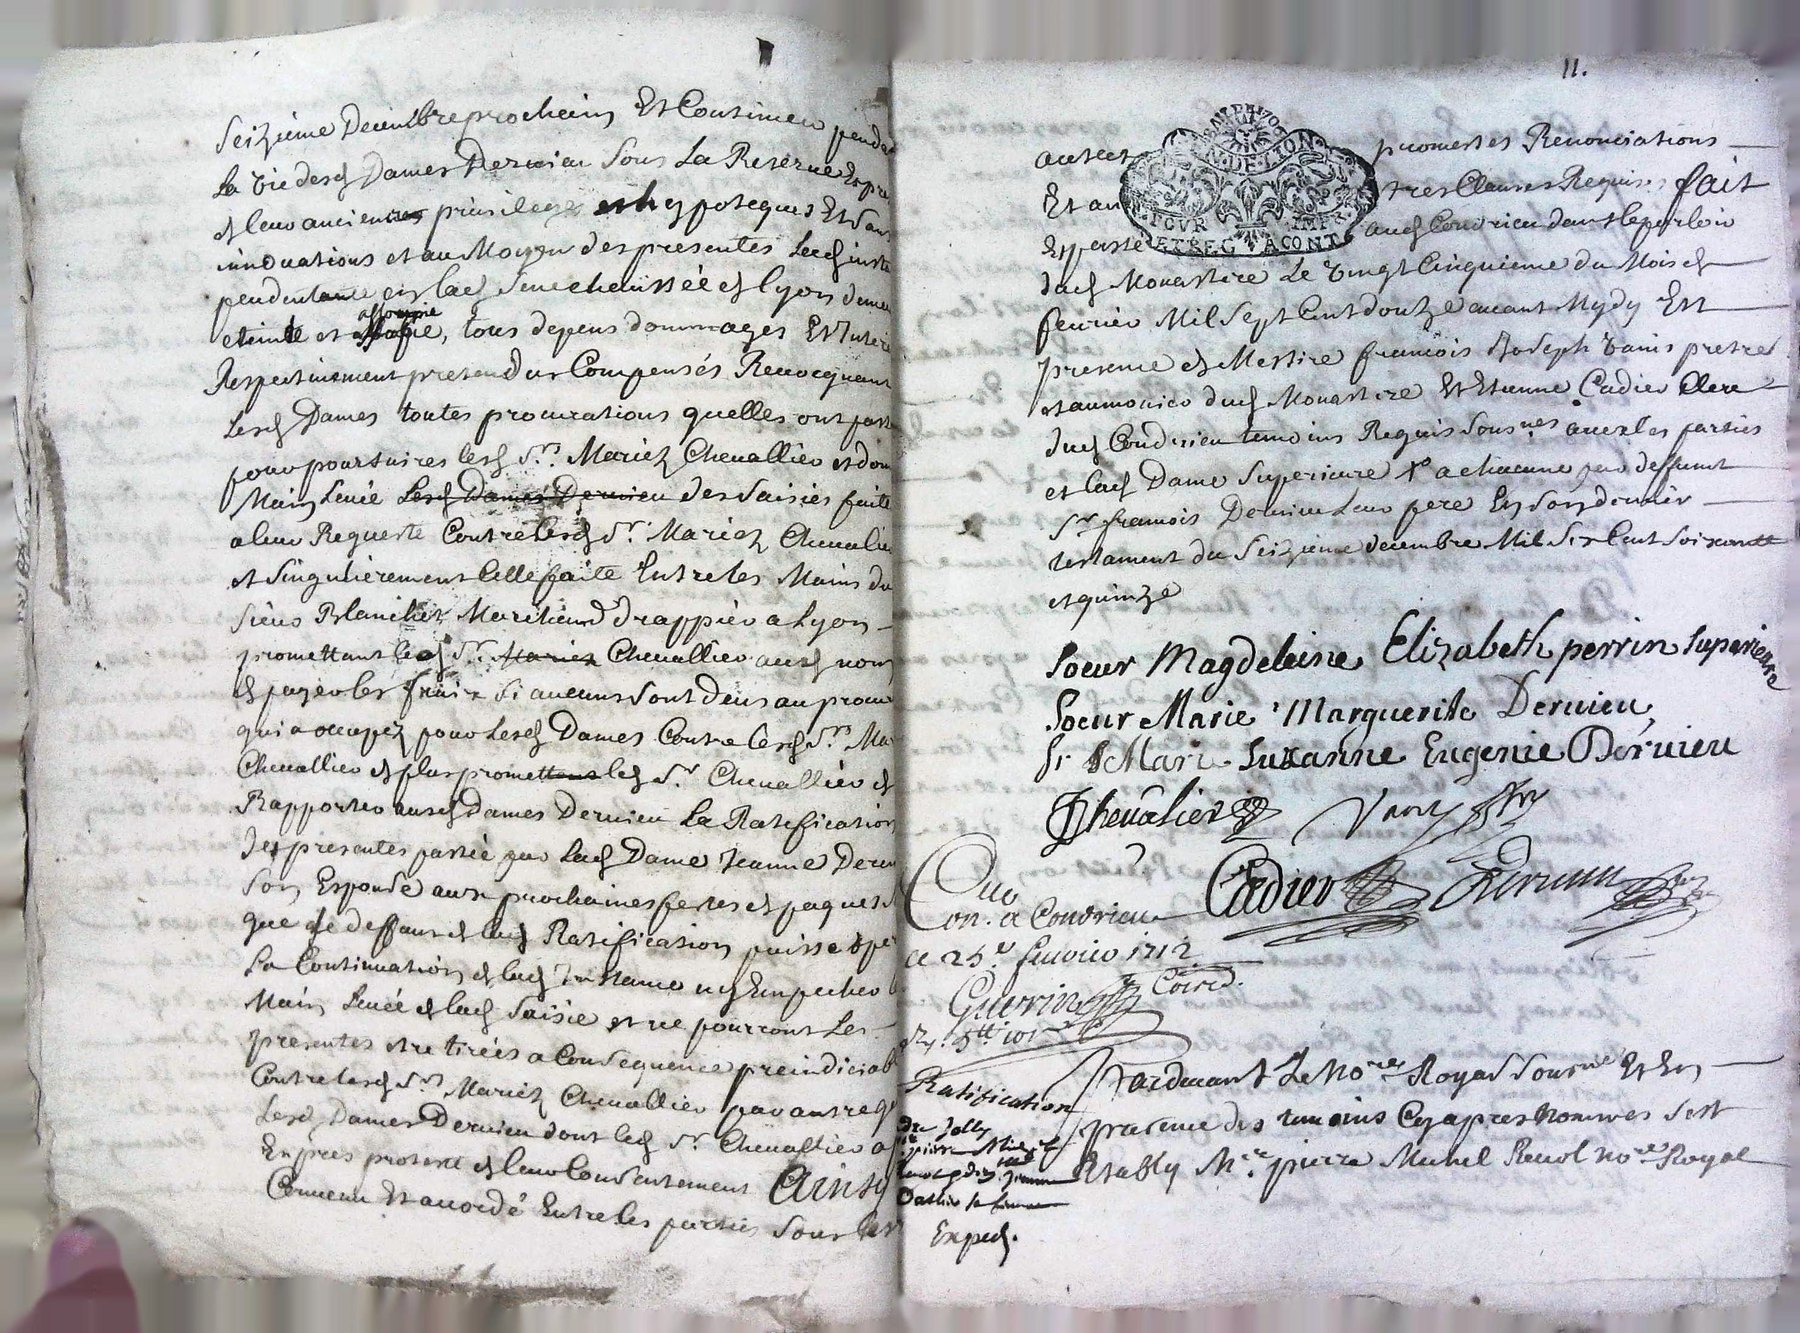 Seizieme Decembre prochein Et Continuer pendan
La vie desd Dames Dervieu Sous La Reserve Expre
d leur anciennes privileges et hypoteques Et Sans
innovations et au Moyen des presentes Lesd insta
pendentante en lad Senechaussée d lyon demeu
eteinte et assoupie, tous depens dommages Et Intere
Respectivement pretendus Compensés Revocquant
Lesd Dames toutes procurations quelles ont pass
pour poursuivres lesd Srs Mariez Chevallier et don
Main Levée Lesd Dames Dervieu des Saisies faitte
a leur Requeste Contre lesd Sr. Mariez Chevalie
et Singulierement Celle faite Entre les Mains du
Sieur Blanchet Marchand drappier a Lyon
promettant led Sr. Mariez Chevallier ausd nom
d payer les fraix Si aucuns sont deus au procu
qui a occupez pour Lesd Dames Contre lesd Srs Ma
Chevallier d plus promettant led Sr Chevallier d
Rapporter ausd Dames Dervieu La Ratification
des presentes passée par Lad Dame Jeanne Dervi
Son Espouse aux prochaines festes d paques
que le deffaut d lad Ratification puisse oper
La Continuation d lad Instance ny Empecher
Main Levée d lad Saisie et ne pourront Les
presentes etre tirées a Consequence preiudiciab
Contre lesd Srs Mariez Chevallier par autre q
Lesd Dames Dervieu dont led Sr Chevallier a
Expres protesté d leur Consentement Ainsy
Convenu Et accordé Entre les parties Sous les
11.
autres promesses Renonciations
Et au tres Clauses Requises fait
Et passé aud Condrieu dans le parloir
dud Monastere Le vingt Cinquieme du Mois d
fevrier Mil Sept Cent douze avant Mydy En
presence d Messire francois Joseph Vanis pretre
et aumonier dud Monastere Et Etienne Cadier Clerc
dud Condrieu temoins Requis Sousnes avec les parties
et lad Dame Superieure X a chacune par deffunt
Sr francois Dervieu Leur pere En Son dernier
testament du Seizieme decembre Mil Six Cent Soixante
et quinze
Soeur Magdeleine Elizabeth perrin Superieure
Soeur Marie Marguerite Dervieu
Sr Marie Suzanne Eugenie Dervieu
Chevalier
Cadier Dervieu
Con. a Condrieu
ce 25e fevrier 1712
Guerin
Ratification
Expéd.
Pardevant Le Nore Royal Sousne Et En
presence des temoins Cy apres Nommes Sest
Etably Mre pierre Muhel Revol Nore Royal